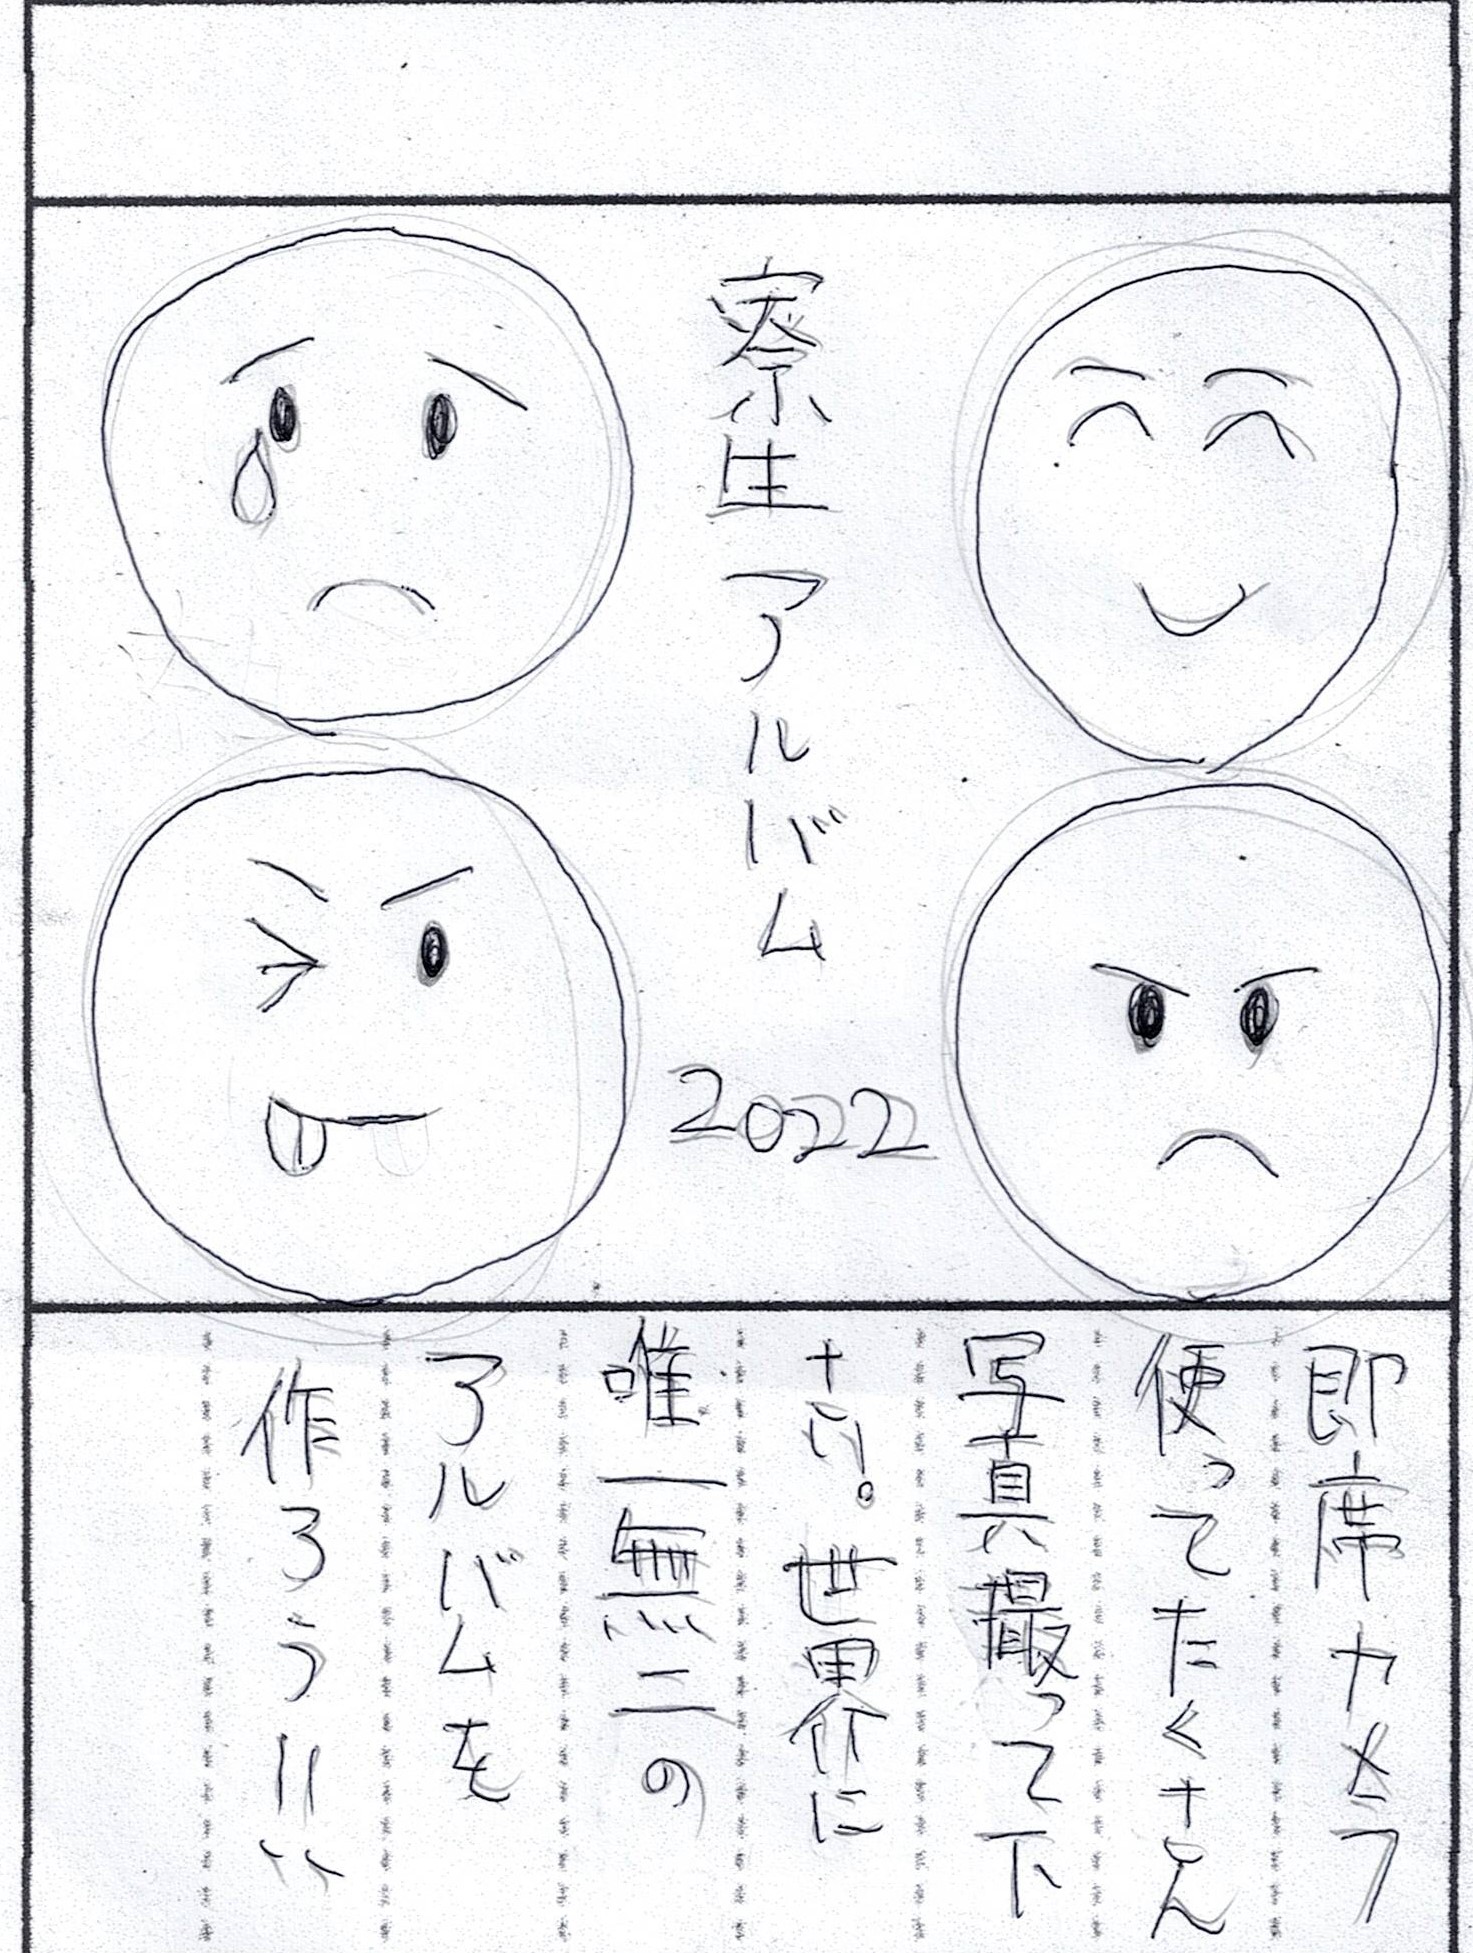 寮生アルバム
2022
即席カメラ
使ってたくさん
写真撮って下
さい。世界に
唯一無二の
アルバムを
作ろう!!